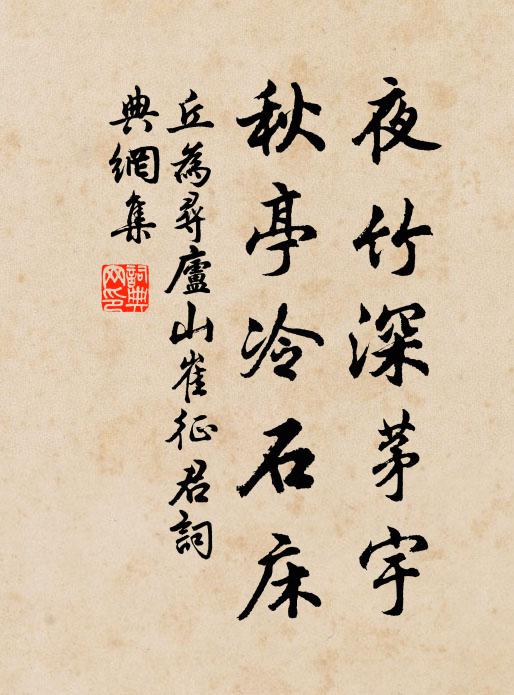 夜竹深茅宇
秋亭冷石床
丘為尋廬山崔征君詞
典網集
詞典网印